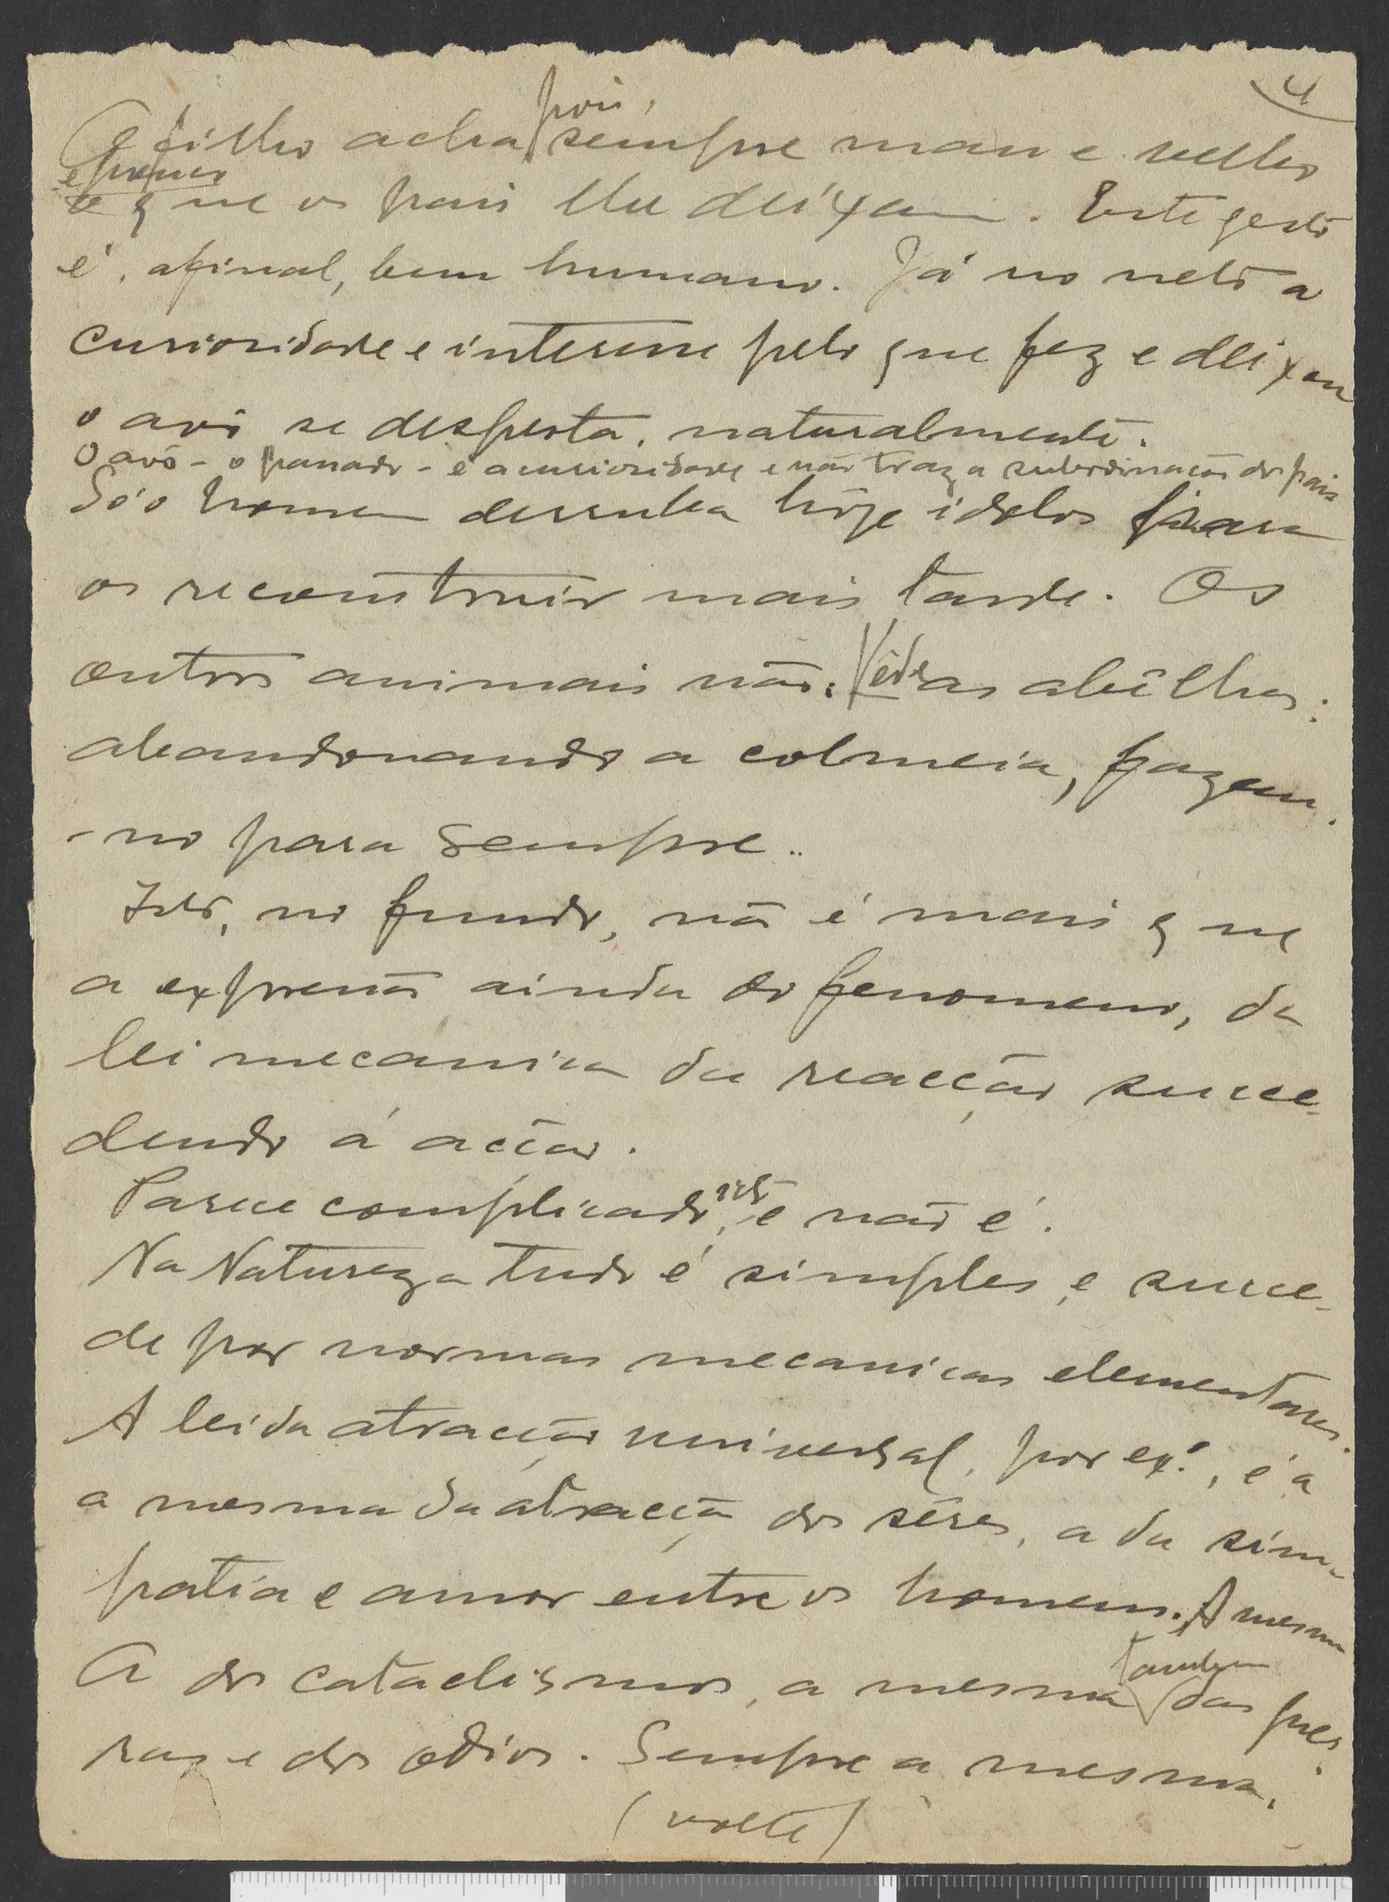 4
O filho acha, pois, sempre mau e velho
e pequeno
o que os pais lhe deixam. Este gesto
é, afinal, bem humano. Já no neto a
curiosidade e interesse pelo que fez e deixou
o avô se desperta, naturalmente.
O avô - o passado - é a curiosidade e não traz a subordinação dos pais
Só o homem derruba hoje idolos para
os reconstruir mais tarde. Os
outros animais não. Vêde as abêlhas:
abandonando a colmeia, fazem-
-no para sempre..
Isto, no fundo, não é mais que
a expressão ainda do fenomeno, da
lei mecanica da reacção succe-
dendo á acção.
Parece complicado isto, e não é.
Na Natureza tudo é simples e succe-
de por normas mecanicas elementares.
A lei da atracção universal, por exº., é a
a mesma da atracção dos sêres, a da sim-
patia e amor entre os homens. A mesma
A dos cataclismos, a mesma tambem das guer-
ras e dos odios. Sempre a mesma.
(volte)